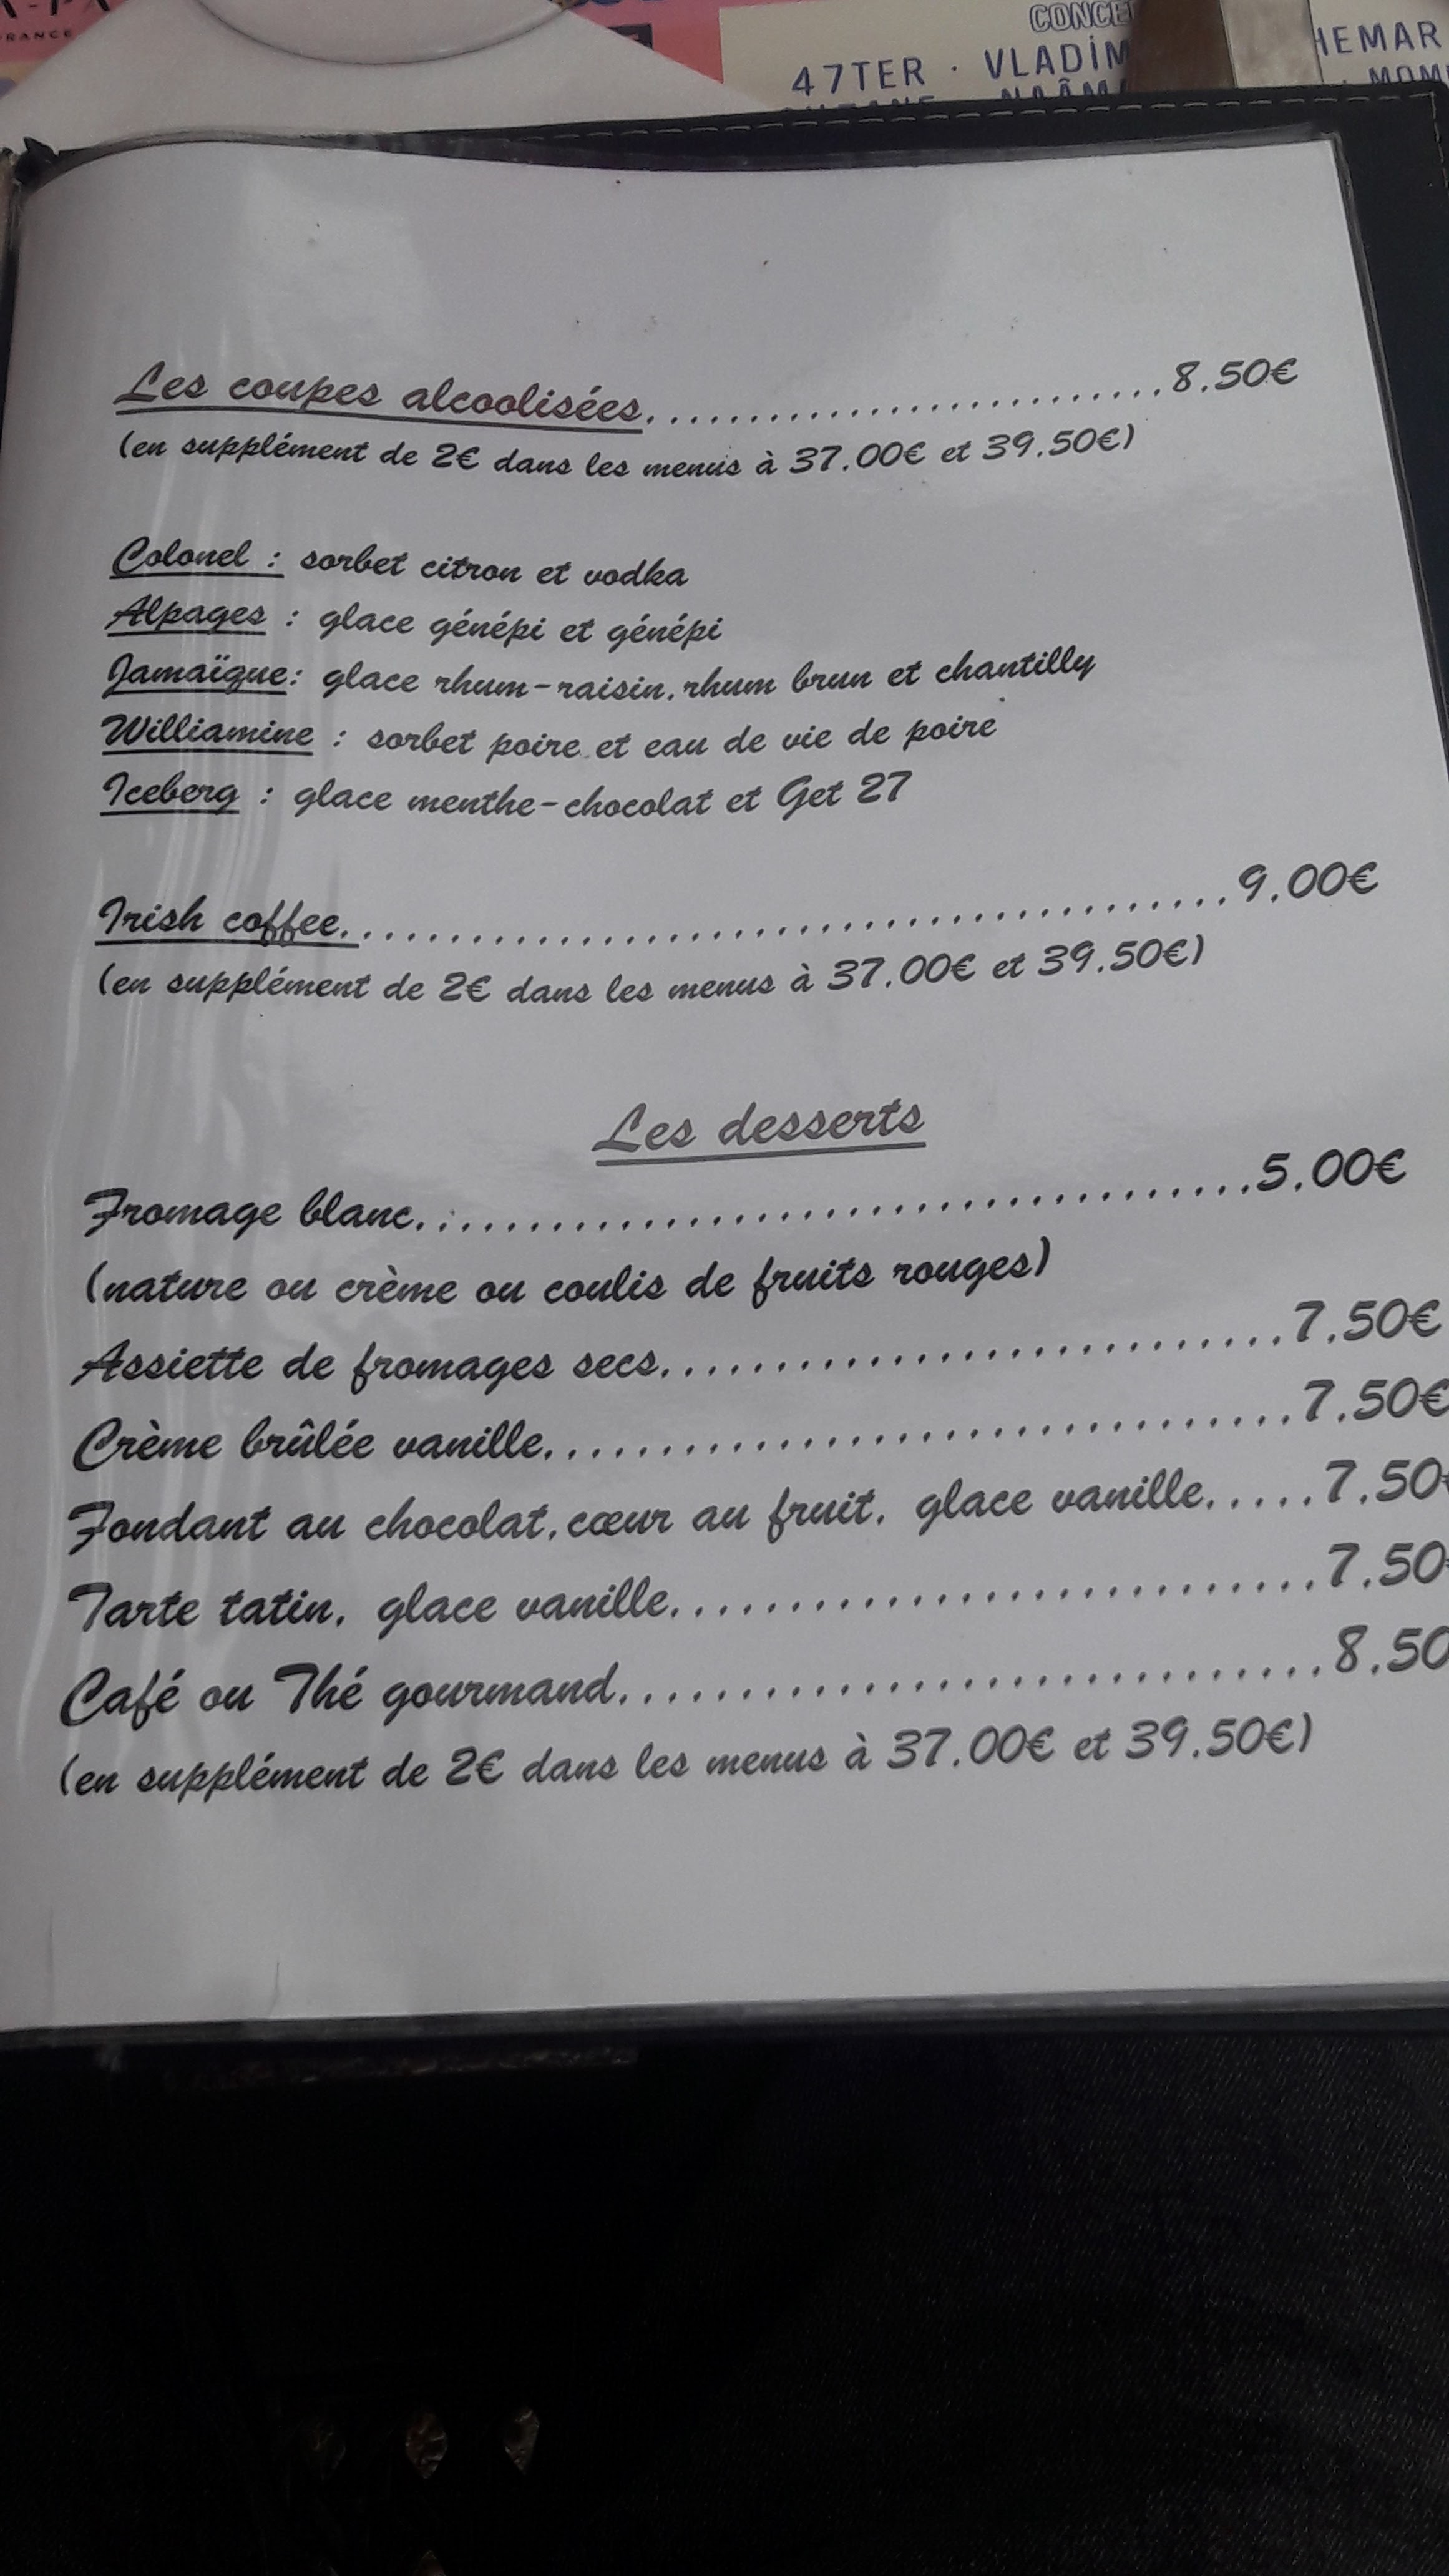 RANCE
CONCE
47TER · VLADİM
HEMAR
Les coupes alcoolisées...........................8.50€
(en supplément de 2€ dans les menus à 37.00€ et 39.50€)
Colonel : sorbet citron et vodka
Alpages : glace génépi et génépi
Jamaïque: glace rhum-raisin, rhum brun et chantilly
Williamine : sorbet poire et eau de vie de poire
Iceberg : glace menthe-chocolat et Get 27
Irish coffee.......................................9.00€
(en supplément de 2€ dans les menus à 37.00€ et 39.50€)
Les desserts
Fromage blanc.....................................5.00€
(nature ou crème ou coulis de fruits rouges)
Assiette de fromages secs...........................7.50€
Crème brûlée vanille................................7.50€
Fondant au chocolat, cœur au fruit, glace vanille.....7.50€
Tarte tatin, glace vanille...........................7.50€
Café ou Thé gourmand..............................8.50
(en supplément de 2€ dans les menus à 37.00€ et 39.50€)